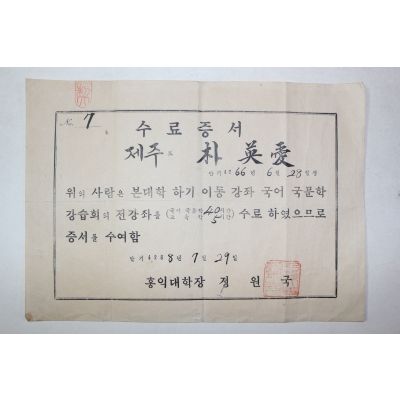 No. 7
수료증서
제주도 朴英愛
단기4266년 6월 28일생
위의 사람은 본대학 하기 이동 강좌 국어 국문학
강습회의 전강좌를 (국어 국문학 40시간
교육학 5시간) 수료 하였으므로
증서를 수여함
단기4288년 7월 29일
홍익대학장 정원국